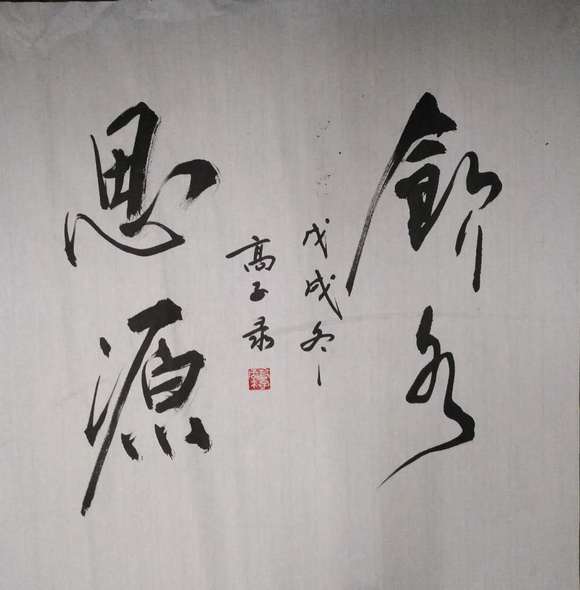 飲水
思源
戊戌冬
高子录